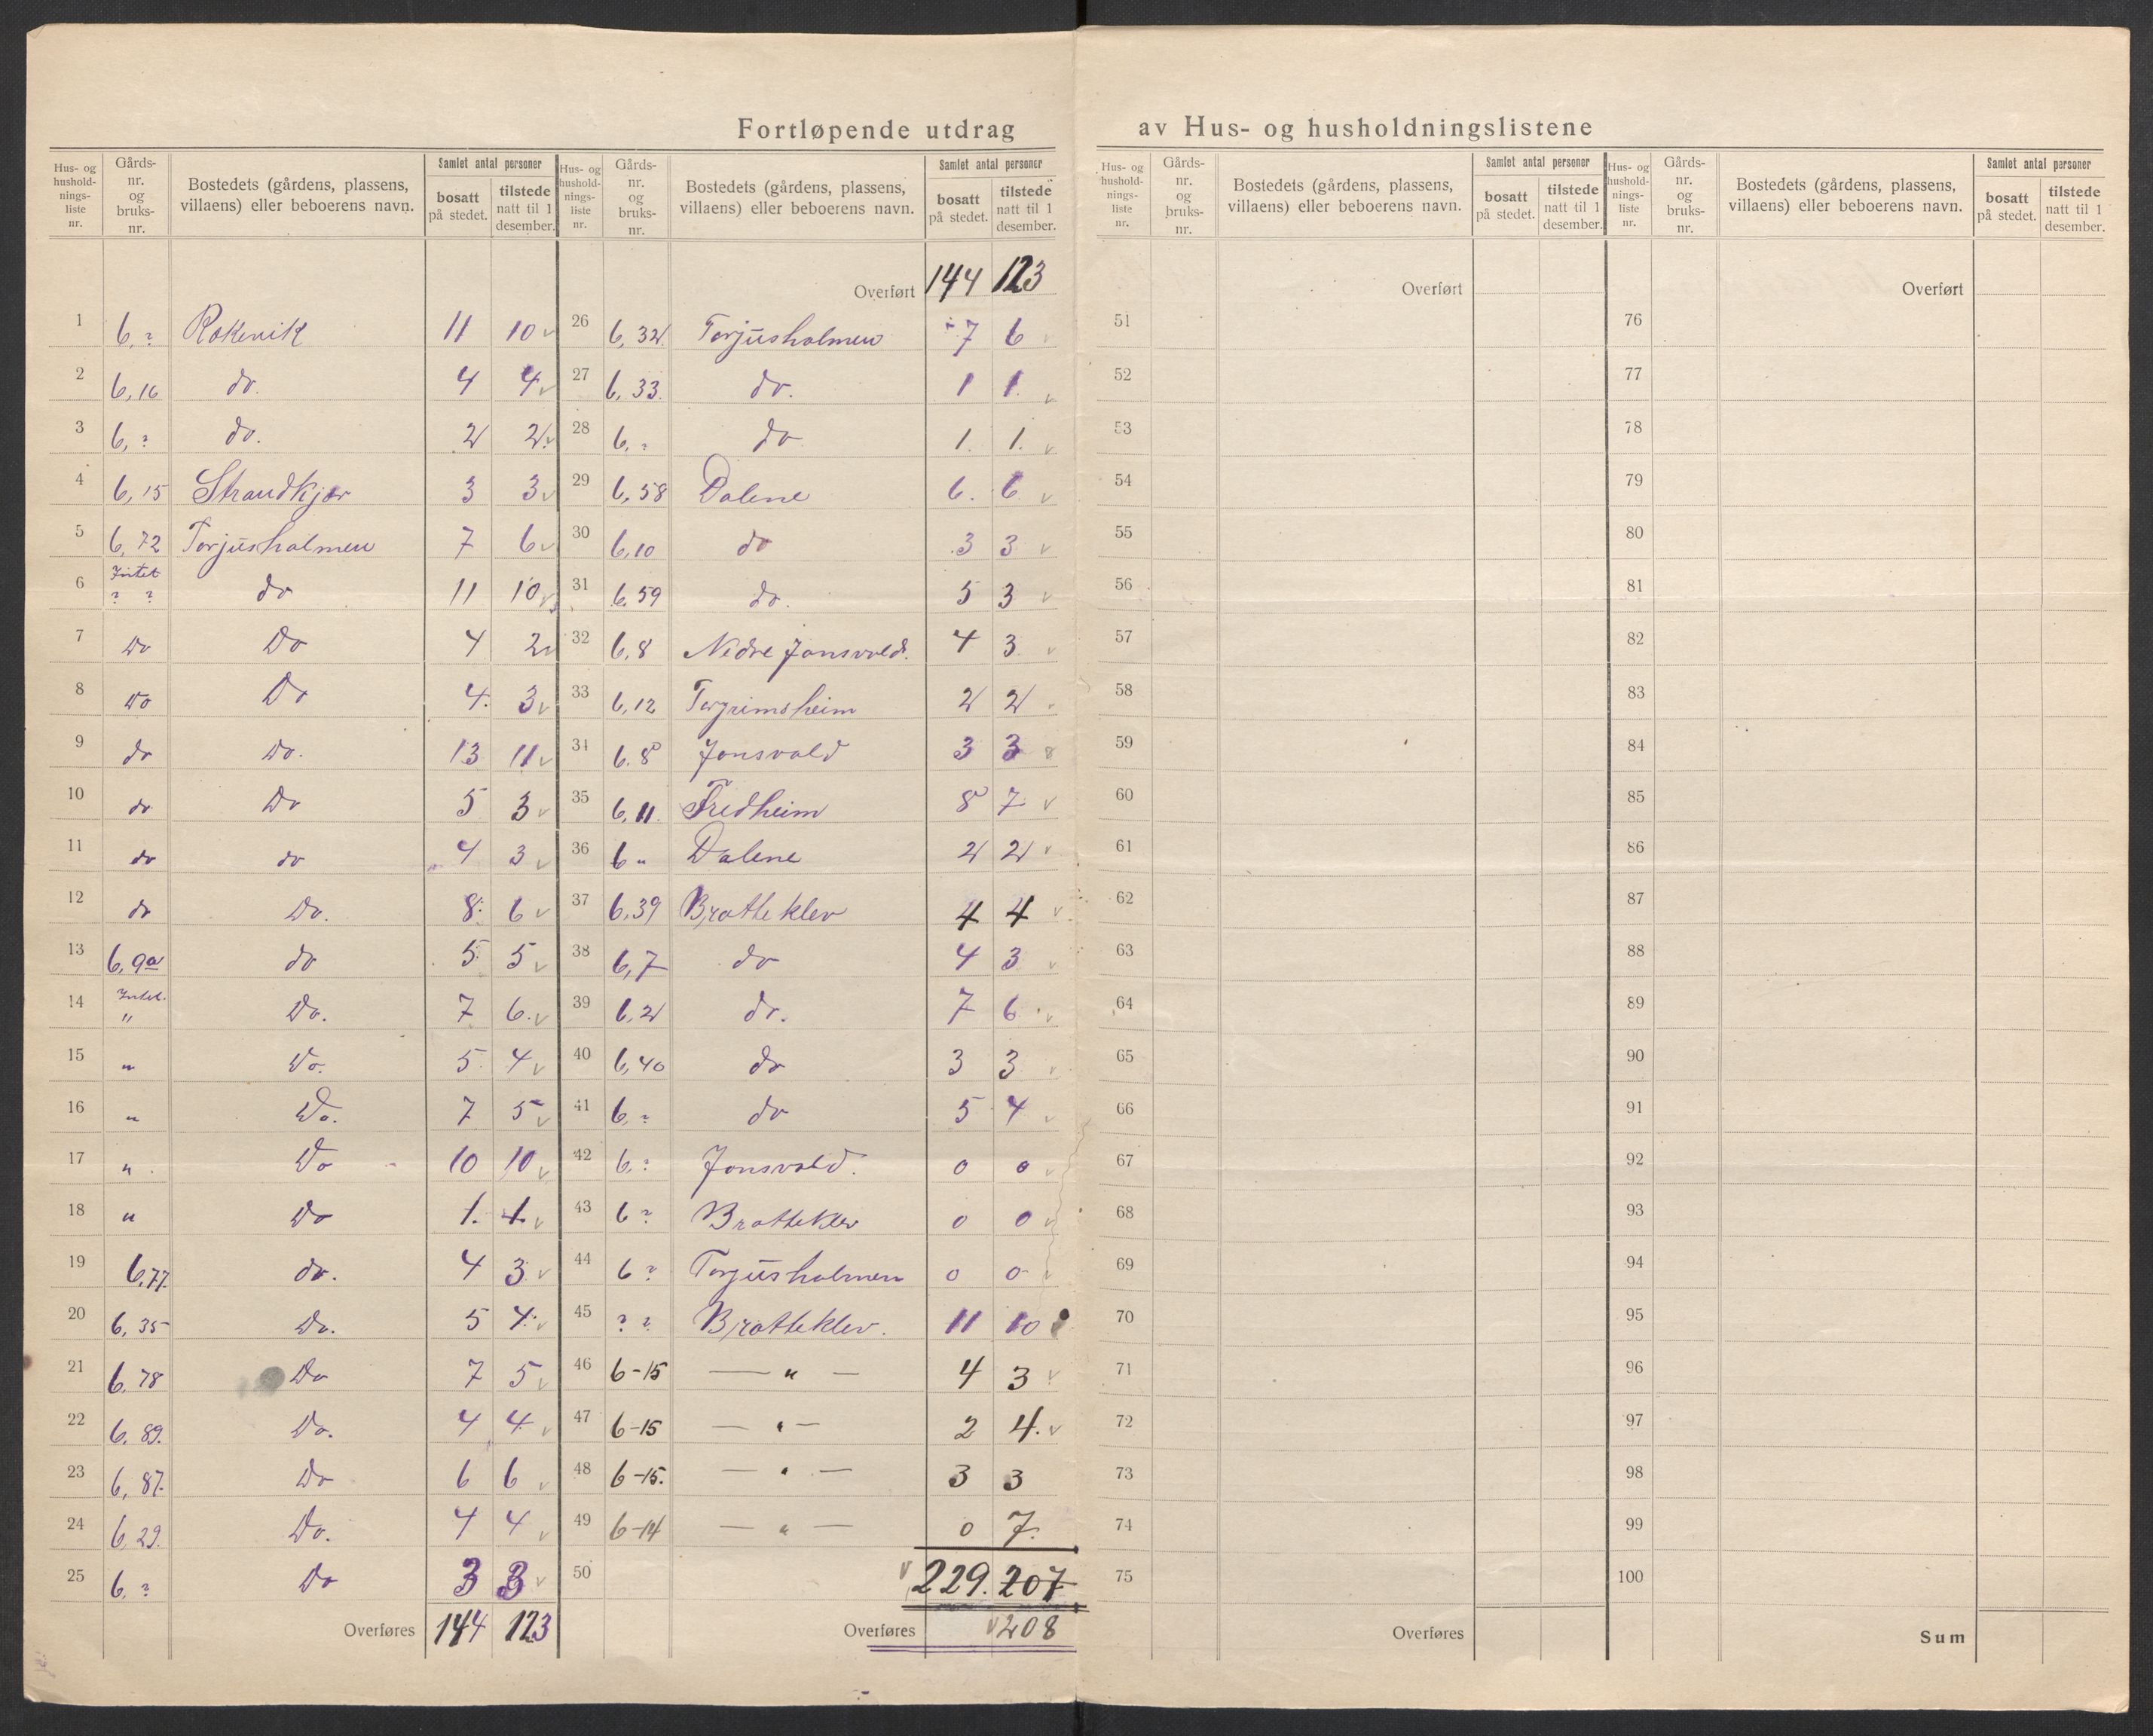 Fortløpende utdrag av Hus- og husholdningslistene
Hus- og hushold-nings-liste nr. | Gårds-nr. og bruks-nr. | Bostedets (gårdens, plassens, villaens) eller beboerens navn. | Samlet antal personer | bosatt på stedet. | tilstede natt til 1 desember.
1 6,? Rokevik 11 10 v
2 6,16 do. 4 4 v
3 6,? do. 2 2. v
4 6,15 Strandkjær 3 3 v
5 6,72 Torjusholmen 7 6 v
6 Intet ? ? do 11 10 v
7 Do Do 4 2 v
8 Do Do 4. 3 v
9 do Do. 13 11 v
10 do Do 5 3 v
11 do do 4 3 v
12 do Do. 8. 6 v
13 6,9a do 5 5 v
14 Intet. " Do. 7 6. v
15 " Do. 5 4 v
16 " Do. 7 5 v
17 " Do 10 10 v
18 " Do 1. 1. v
19 6,77. do. 4 3 v
20 6,35 Do. 5 4. v
21 6,78 Do 7 5 v
22 6,89. Do. 4 4 v
23 6,87. Do 6 6 v
24 6,29. Do. 4 4 v
25 6,? Do 3 3 v
Overføres 144 123
Hus- og hushold-nings-liste nr. | Gårds-nr. og bruks-nr. | Bostedets (gårdens, plassens, villaens) eller beboerens navn. | Samlet antal personer | bosatt på stedet. | tilstede natt til 1 desember.
Overført 144 123
26 6,32. Torjusholmen 7 6 v
27 6,33. do. 1 1. v
28 6,? do 1. 1. v
29 6,58 Dalene 6. 6 v
30 6,10 do 3 3 v
31 6,59 do. 5 3 v
32 6,8 Nedre Jonsvold. 4 3 v
33 6,12 Torgrimsheim 2 2 v
34 6.8 Jonsvold 3 3
35 6,11. Fredheim 8 7. v
36 6 " Dalene 2 2 v
37 6,39 Bratteklev 4 4 v
38 6,7 do 4 3 v
39 6,2 do. 7 6 v
40 6,40 do 3 3 v
41 6,? do 5 4 v
42 6,? Jonsvold. 0 0 v
43 6 ? Bratteklev 0 0 v
44 6 ? Torjusholmen 0 0 v
45 ? ? Bratteklev. 11 10
46 6-15 — " — 4 3 v
47 6-15 — " — 2 4. v
48 6-15. — " — 3 3
49 6-14 — " — 0 7.
50 v 229. 207
Overføres v 208
Hus- og hushold-nings-liste nr. | Gårds-nr. og bruks-nr. | Bostedets (gårdens, plassens, villaens) eller beboerens navn. | Samlet antal personer | bosatt på stedet. | tilstede natt til 1 desember.
Overført
51
52
53
54
55
56
57
58
59
60
61
62
63
64
65
66
67
68
69
70
71
72
73
74
75
Overføres
Hus- og hushold-nings-liste nr. | Gårds-nr. og bruks-nr. | Bostedets (gårdens, plassens, villaens) eller beboerens navn. | Samlet antal personer | bosatt på stedet. | tilstede natt til 1 desember.
Overført
76
77
78
79
80
81
82
83
84
85
86
87
88
89
90
91
92
93
94
95
96
97
98
99
100
Sum